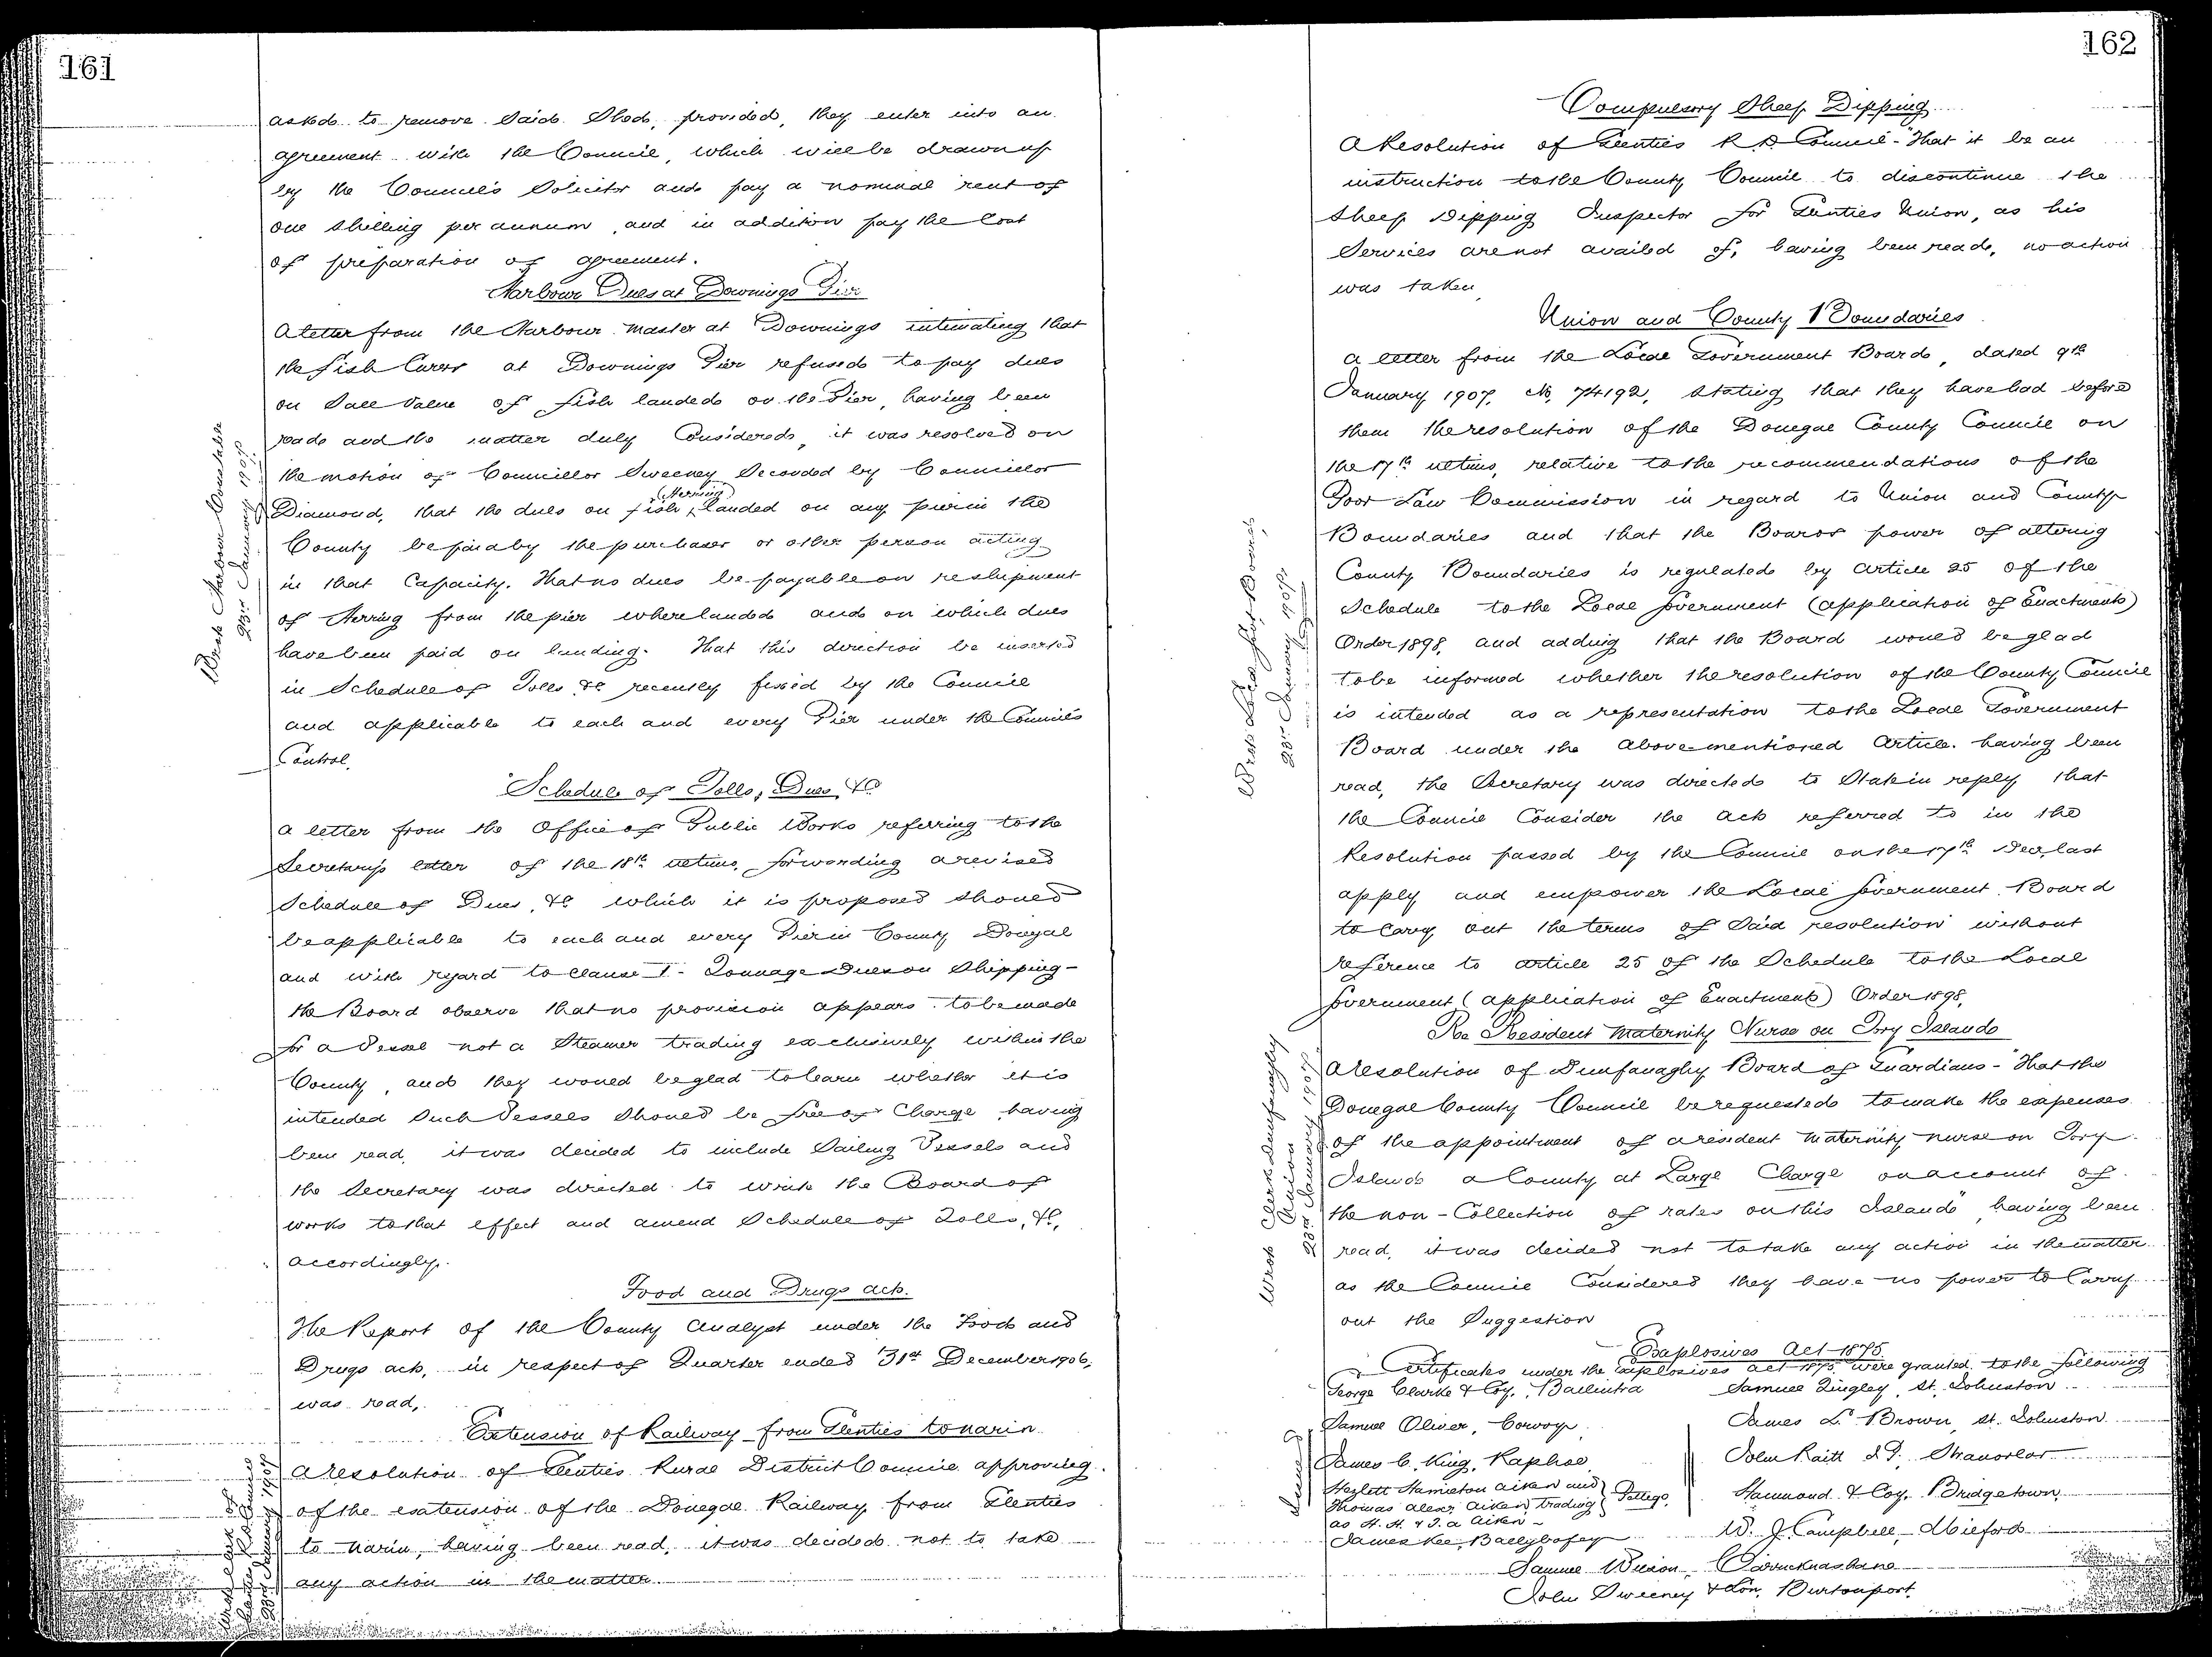 161
asked to remove said Shed, provided, they enter into an
agreement with the Council, which will be drawn up
by the Council's Solicitor and pay a nominal rent of
one shilling per annum, and in addition pay the Cost
of preparation of agreement.
Harbour Dues at Downings Pier
A letter from the Harbour Master at Downings intimating that
the fish Curers at Downings Pier refused to pay dues
on Sale Value of fish landed on the Pier, having been
read and the matter duly Considered, it was resolved on
the motion of Councillor Sweeney Seconded by Councillor
(Herring)
Diamond, that the dues on fish, landed on any pier in the
County be paid by the purchaser or other person acting
in that Capacity. That no dues be payable on reshipment
of Herring from the pier where landed and on which dues
have been paid on landing. That this direction be inserted
in Schedule of Tolls &c recently fixed by the Council
and applicable to each and every Pier under the Council's
Control.
Wrote Harbour Constable
23rd January 1907.
Schedule of Tolls, Dues, &c
A letter from the Office of Public Works referring to the
Secretary's letter of the 18th ultimo, forwarding a revised
Schedule of Dues, &c which it is proposed should
be applicable to each and every Pier in County Donegal
and with regard to Clause I - Tonnage Dues on Shipping -
the Board observe that no provision appears to be made
for a Vessel not a Steamer trading exclusively within the
County, and they would be glad to learn whether it is
intended Such Vessels Should be free of Charge, having
been read, it was decided to include Sailing Vessels and
the Secretary was directed to write the Board of
works to that effect and amend Schedule of Tolls, &c,
accordingly.
Food and Drugs acts.
The Report of the County Analyst under the Food and
Drugs acts, in respect of Quarter ended 31st December 1906,
was read,
Extension of Railway from Glenties to Narin
A resolution of Glenties Rural District Council approving
of the extension of the Donegal Railway from Glenties
to Narin, having been read, it was decided not to take
any action in the matter.
Wrote Clerk of
Glenties R.D. Council
23rd January 1907
162
Compulsory Sheep Dipping
A Resolution of Glenties R.D. Council - "That it be an
instruction to the County Council to discontinue the
Sheep Dipping Inspector for Glenties Union, as his
Services are not availed of, having been read, no action
was taken
Union and County Boundaries
A letter from the Local Government Board, dated 9th
January 1907, No, 74192, Stating that they have had before
them the resolution of the Donegal County Council on
the 17th ultimo, relative to the recommendations of the
Poor Law Commission in regard to Union and County
Boundaries and that the Boards power of altering
County Boundaries is regulated by Article 25 of the
Schedule to the Local Government (application of Enactments)
Order 1898, and adding that the Board would be glad
to be informed whether the resolution of the County Council
is intended as a representation to the Local Government
Board under the above-mentioned Article. having been
read, the Secretary was directed to State in reply that
the Council Consider the acts referred to in the
Resolution passed by the Council on the 17th Dec, last
apply and empower the Local Government Board
to Carry out the terms of Said resolution without
reference to Article 25 of the Schedule to the Local
Government (application of Enactments) Order 1898,
Wrote Local Govt. Board,
23rd January 1907.
Re Resident Maternity Nurse on Tory Island
A resolution of Dunfanaghy Board of Guardians - "That the
Donegal County Council be requested to make the expenses
of the appointment of a resident Maternity nurse on Tory
Island a County at Large Charge on account of
the non-Collection of rates on this Island" having been
read, it was decided not to take any action in the matter
as the Council Considered they have no power to Carry
out the Suggestion
Wrote Clerk Dunfanaghy
Union
23rd January 1907
Explosives Act 1875
Certificates under the Explosives act 1875 were granted to the following
George Clarke & Coy., Ballintra Samuel Tingley, St. Johnston
Samuel Oliver, Corvoy, James L. Brown, St. Johnston
James C. King, Raphoe, John Raitt J.P., Stranorlar
Hezlett Hamilton Aiken and
Thomas Alexr Aiken trading Pettigo, Hammond & Coy, Bridgetown,
as H. H. & T. A Aiken
James Kee, Ballybofey W. J. Campbell, Milford
Samuel Wilson, Carricknashane
John Sweeney & Son, Burtonport,
Issued